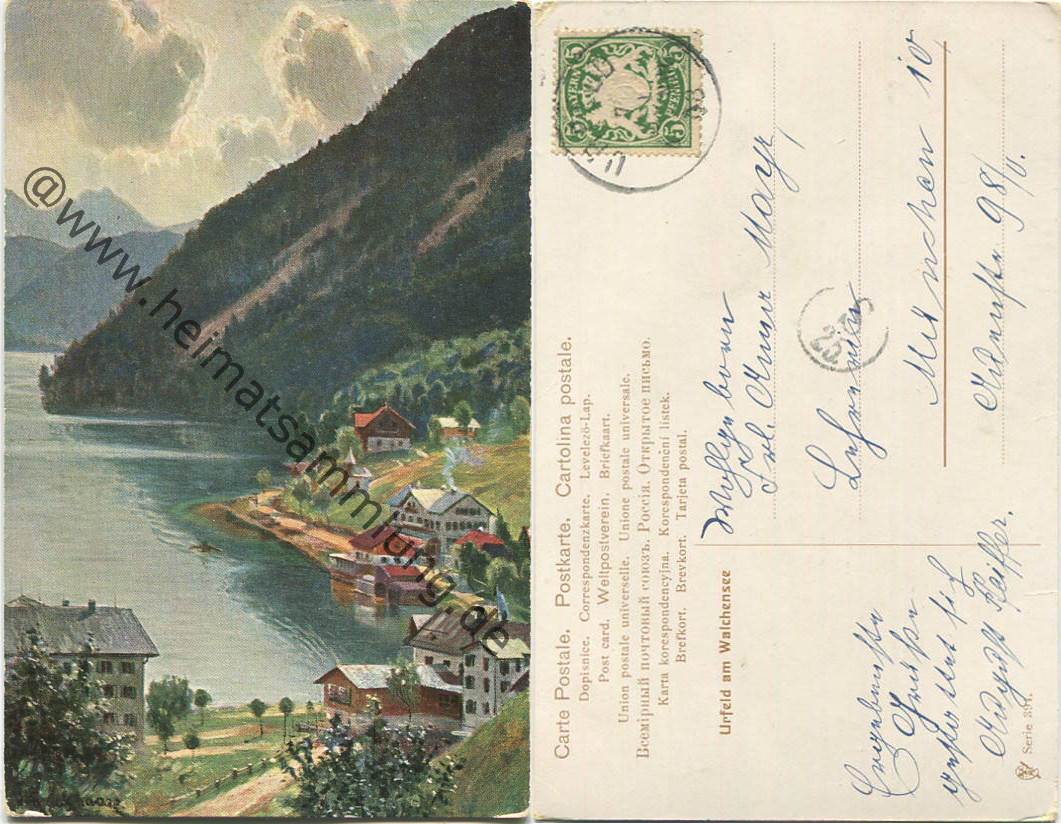 @www.heimatsammlung.de
BAYERN
5 5
PFENNIG
Carte Postale. Postkarte. Cartolina postale.
Dopisnice. Correspondenzkarte. Levelező-Lap.
Post card. Weltpostverein. Briefkaart.
Union postale universelle. Unione postale universale.
Всемірный почтовый союзъ. Россія. Открытое письмо.
Karta korespondencyjna. Korespondenční listek.
Brefkort. Brevkort. Tarjeta postal.
Urfeld am Walchensee
Ergebenste
Grüße
Pfeiffer.
Wohlgeboren
Frl. Anna Mayr,
München 10
98/II.
Serie 391.